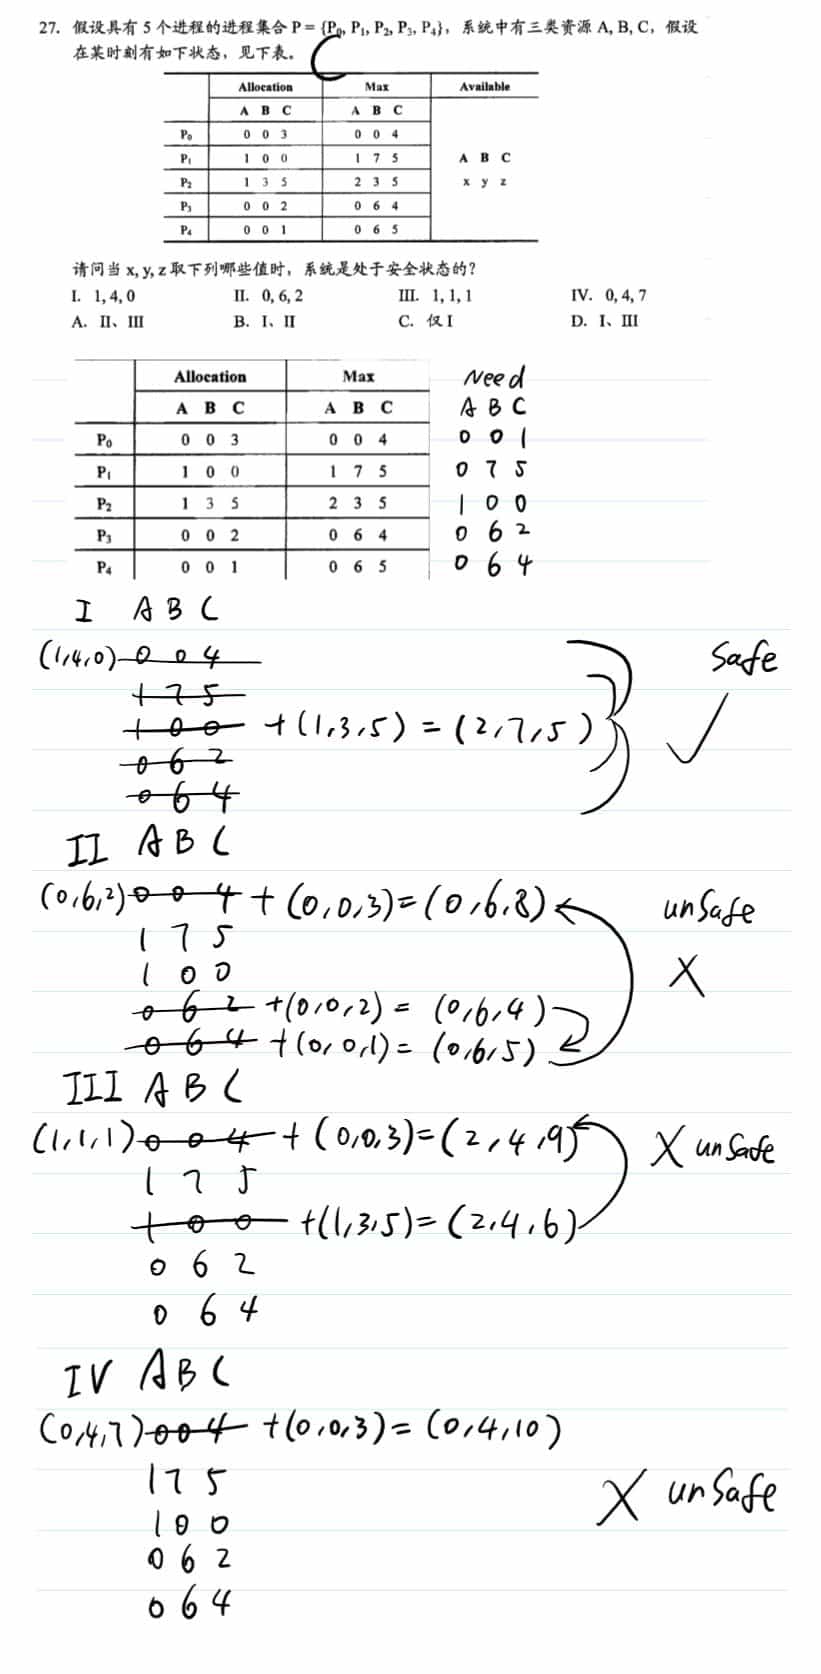 27. 假设具有 5 个进程的进程集合 P = {P₀, P₁, P₂, P₃, P₄}，系统中有三类资源 A, B, C，假设
在某时刻有如下状态，见下表。
Allocation Max Available
A B C A B C
P₀ 0 0 3 0 0 4
P₁ 1 0 0 1 7 5 A B C
P₂ 1 3 5 2 3 5 x y z
P₃ 0 0 2 0 6 4
P₄ 0 0 1 0 6 5
请问当 x, y, z 取下列哪些值时，系统是处于安全状态的？
I. 1, 4, 0 II. 0, 6, 2 III. 1, 1, 1 IV. 0, 4, 7
A. II、III B. I、II C. 仅 I D. I、III
C
Allocation Max Need
A B C A B C A B C
P₀ 0 0 3 0 0 4 0 0 1
P₁ 1 0 0 1 7 5 0 7 5
P₂ 1 3 5 2 3 5 1 0 0
P₃ 0 0 2 0 6 4 0 6 2
P₄ 0 0 1 0 6 5 0 6 4
I A B C
(1,4,0) 0 0 4 Safe
1 7 5
1 0 0 + (1,3,5) = (2,7,5)
0 6 2
0 6 4
II A B C
(0,6,2) 0 0 4 + (0,0,3) = (0,6,8) unSafe
1 7 5
1 0 0 X
0 6 2 + (0,0,2) = (0,6,4)
0 6 4 + (0,0,1) = (0,6,5)
III A B C
(1,1,1) 0 0 4 + (0,0,3) = (2,4,9) X unSafe
1 7 5
1 0 0 + (1,3,5) = (2,4,6)
0 6 2
0 6 4
IV A B C
(0,4,7) 0 0 4 + (0,0,3) = (0,4,10)
1 7 5 X unSafe
1 0 0
0 6 2
0 6 4